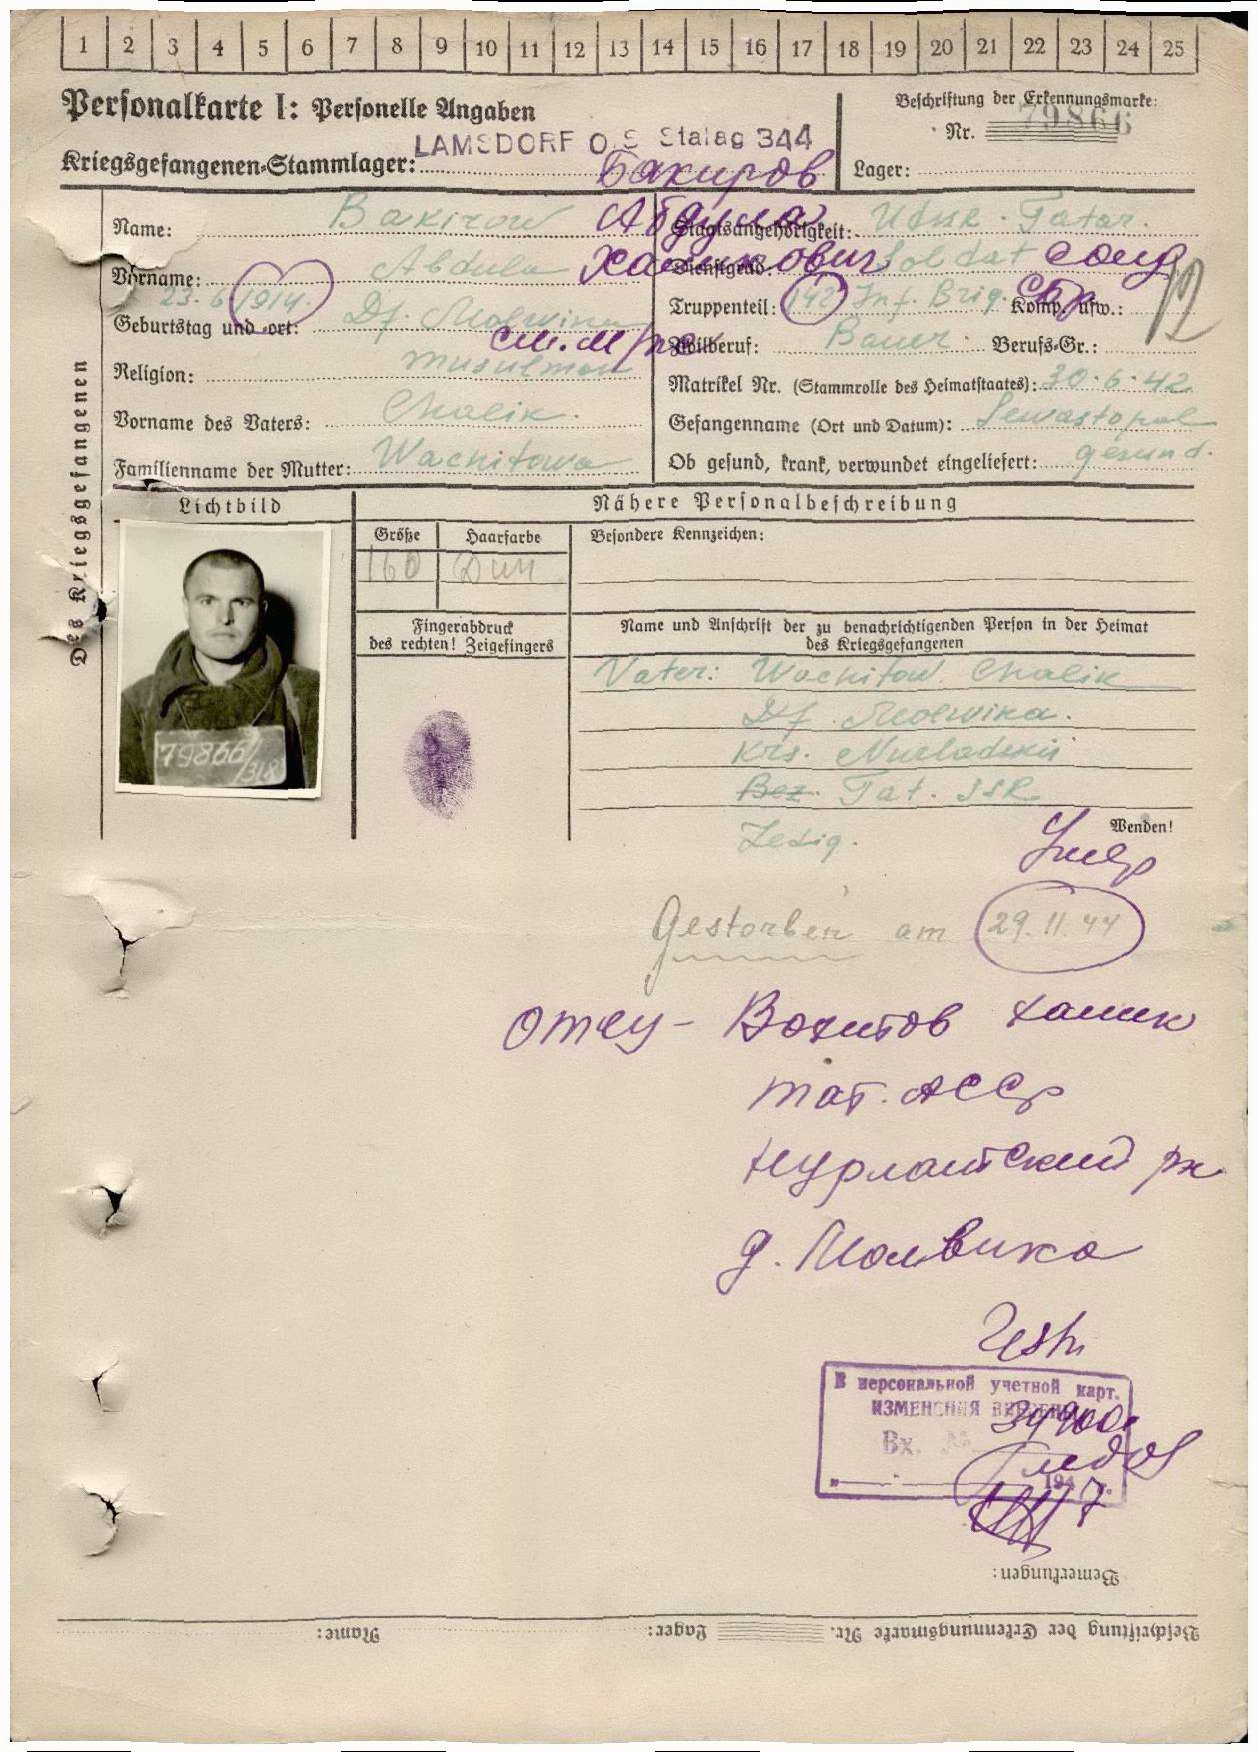 1 2 3 4 5 6 7 8 9 10 11 12 13 14 15 16 17 18 19 20 21 22 23 24 25
Personalkarte I: Personelle Angaben
Beschriftung der Erkennungsmarke:
Nr. 79866
LAMSDORF O.S Stalag 344
Kriegsgefangenen-Stammlager:
Lager:
Бакиров
Абдула
Халикович
Name: Bakirow
Staatsangehörigkeit: Tatar.
Vorname: Abdula
Dienstgrad: Soldat солд
23.6.1914.
Geburtstag und -ort: Df. Molwina
Truppenteil: 142 Inf. Brig. Komp. usw.:
см. м/пс
Zivilberuf: Bauer. Berufs-Gr.:
Religion: Musulman
Matrikel Nr. (Stammrolle des Heimatstaates): 30.6.42.
Vorname des Vaters: Chalik.
Gefangenname (Ort und Datum): Sewastopol
Familienname der Mutter: Wachitowa
Ob gesund, krank, verwundet eingeliefert: gesund.
Des Kriegsgefangenen
Lichtbild
Nähere Personalbeschreibung
Größe
Haarfarbe
Besondere Kennzeichen:
160
Dun
Fingerabdruck
des rechten! Zeigefingers
Name und Anschrift der zu benachrichtigenden Person in der Heimat
des Kriegsgefangenen
Vater: Wachitow Chalik
Df. Molwina.
Krs. Nurladskii
Bez. Tat. SSR
Ledig.
79866/
318
Wenden!
Умер
Gestorben am 29.11.44
отец - Вахитов Халик
тат. АССР
Нурлатский рн
д. Молвина
В персональной учетной карт.
ИЗМЕНЕНИЯ
Вх. №
194 7.
Bemerkungen:
Beschriftung der Erkennungsmarke Nr. Lager: Name: